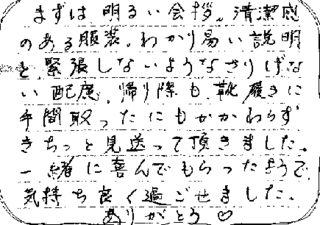 まずは明るい会拶。清潔感
のある服装。わかり易い説明
と、緊張しないようなさりげな
い配慮。帰り際も靴履きに
手間取ったにもかかわらず
きちっと見送って頂きました。
一緒に喜んでもらったようで
気持ち良く過ごせました。
ありがとう♡